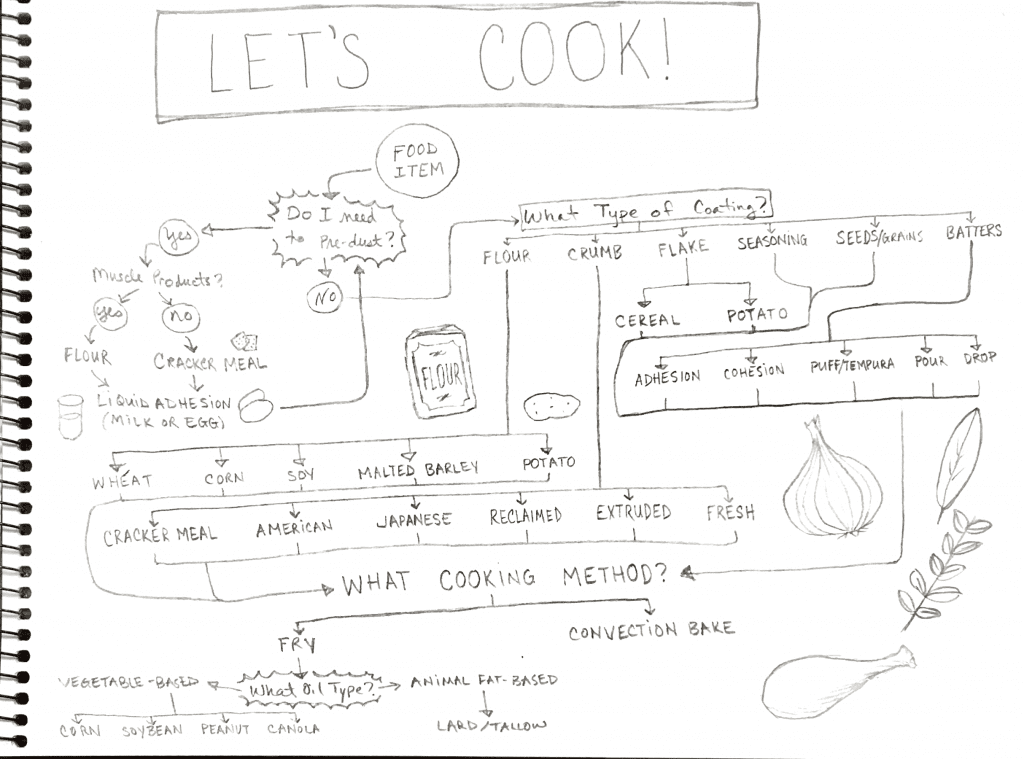 LET'S COOK!
FOOD
ITEM
Do I need
to Pre-dust?
Yes
No
Muscle Products?
yes
no
FLOUR
CRACKER MEAL
LIQUID ADHESION
(MILK OR EGG)
What Type of Coating?
FLOUR
CRUMB
FLAKE
SEASONING
SEEDS/GRAINS
BATTERS
CEREAL
POTATO
ADHESION
COHESION
PUFF/TEMPURA
POUR
DROP
FLOUR
WHEAT
CORN
SOY
MALTED BARLEY
POTATO
CRACKER MEAL
AMERICAN
JAPANESE
RECLAIMED
EXTRUDED
FRESH
WHAT COOKING METHOD?
FRY
CONVECTION BAKE
What Oil Type?
VEGETABLE-BASED
ANIMAL FAT-BASED
CORN
SOYBEAN
PEANUT
CANOLA
LARD/TALLOW